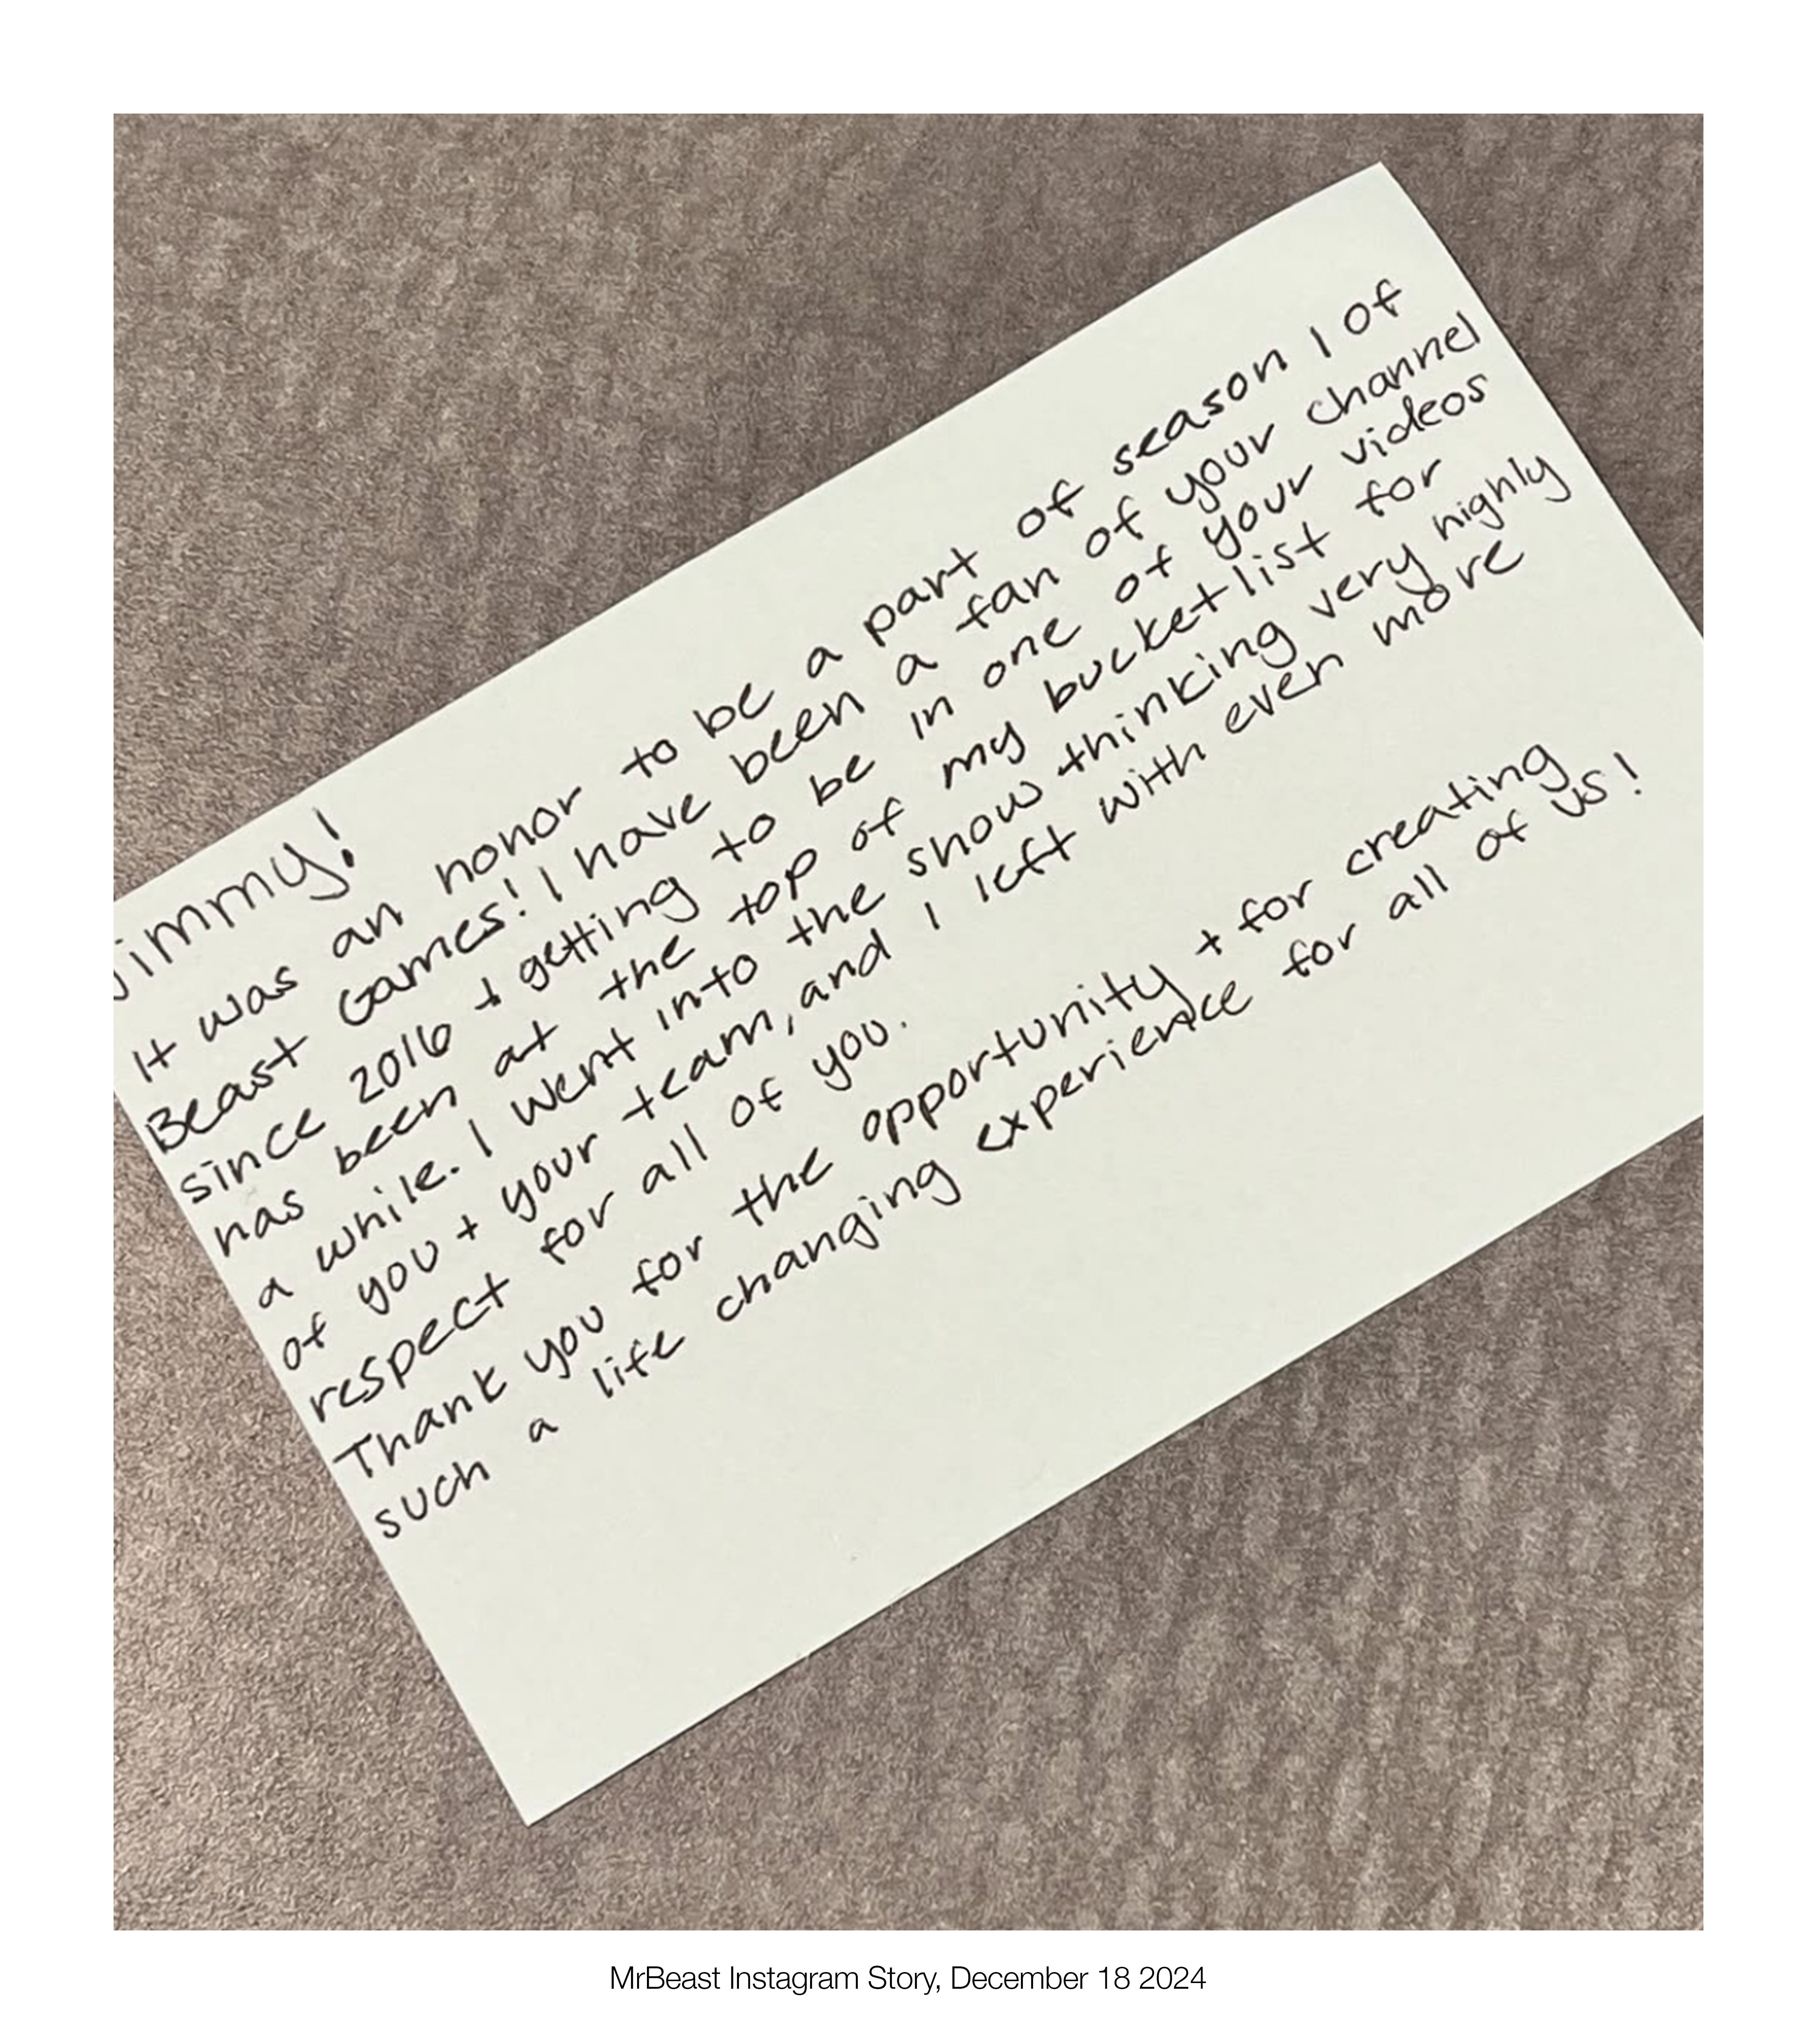 Jimmy!
It was an honor to be a part of season 1 of
Beast Games! I have been a fan of your channel
since 2016 + getting to be in one of your videos
has been at the top of my bucketlist for
a while. I went into the show thinking very highly
of you + your team, and I left with even more
respect for all of you.
Thank you for the opportunity + for creating
such a life changing experience for all of us!
MrBeast Instagram Story, December 18 2024